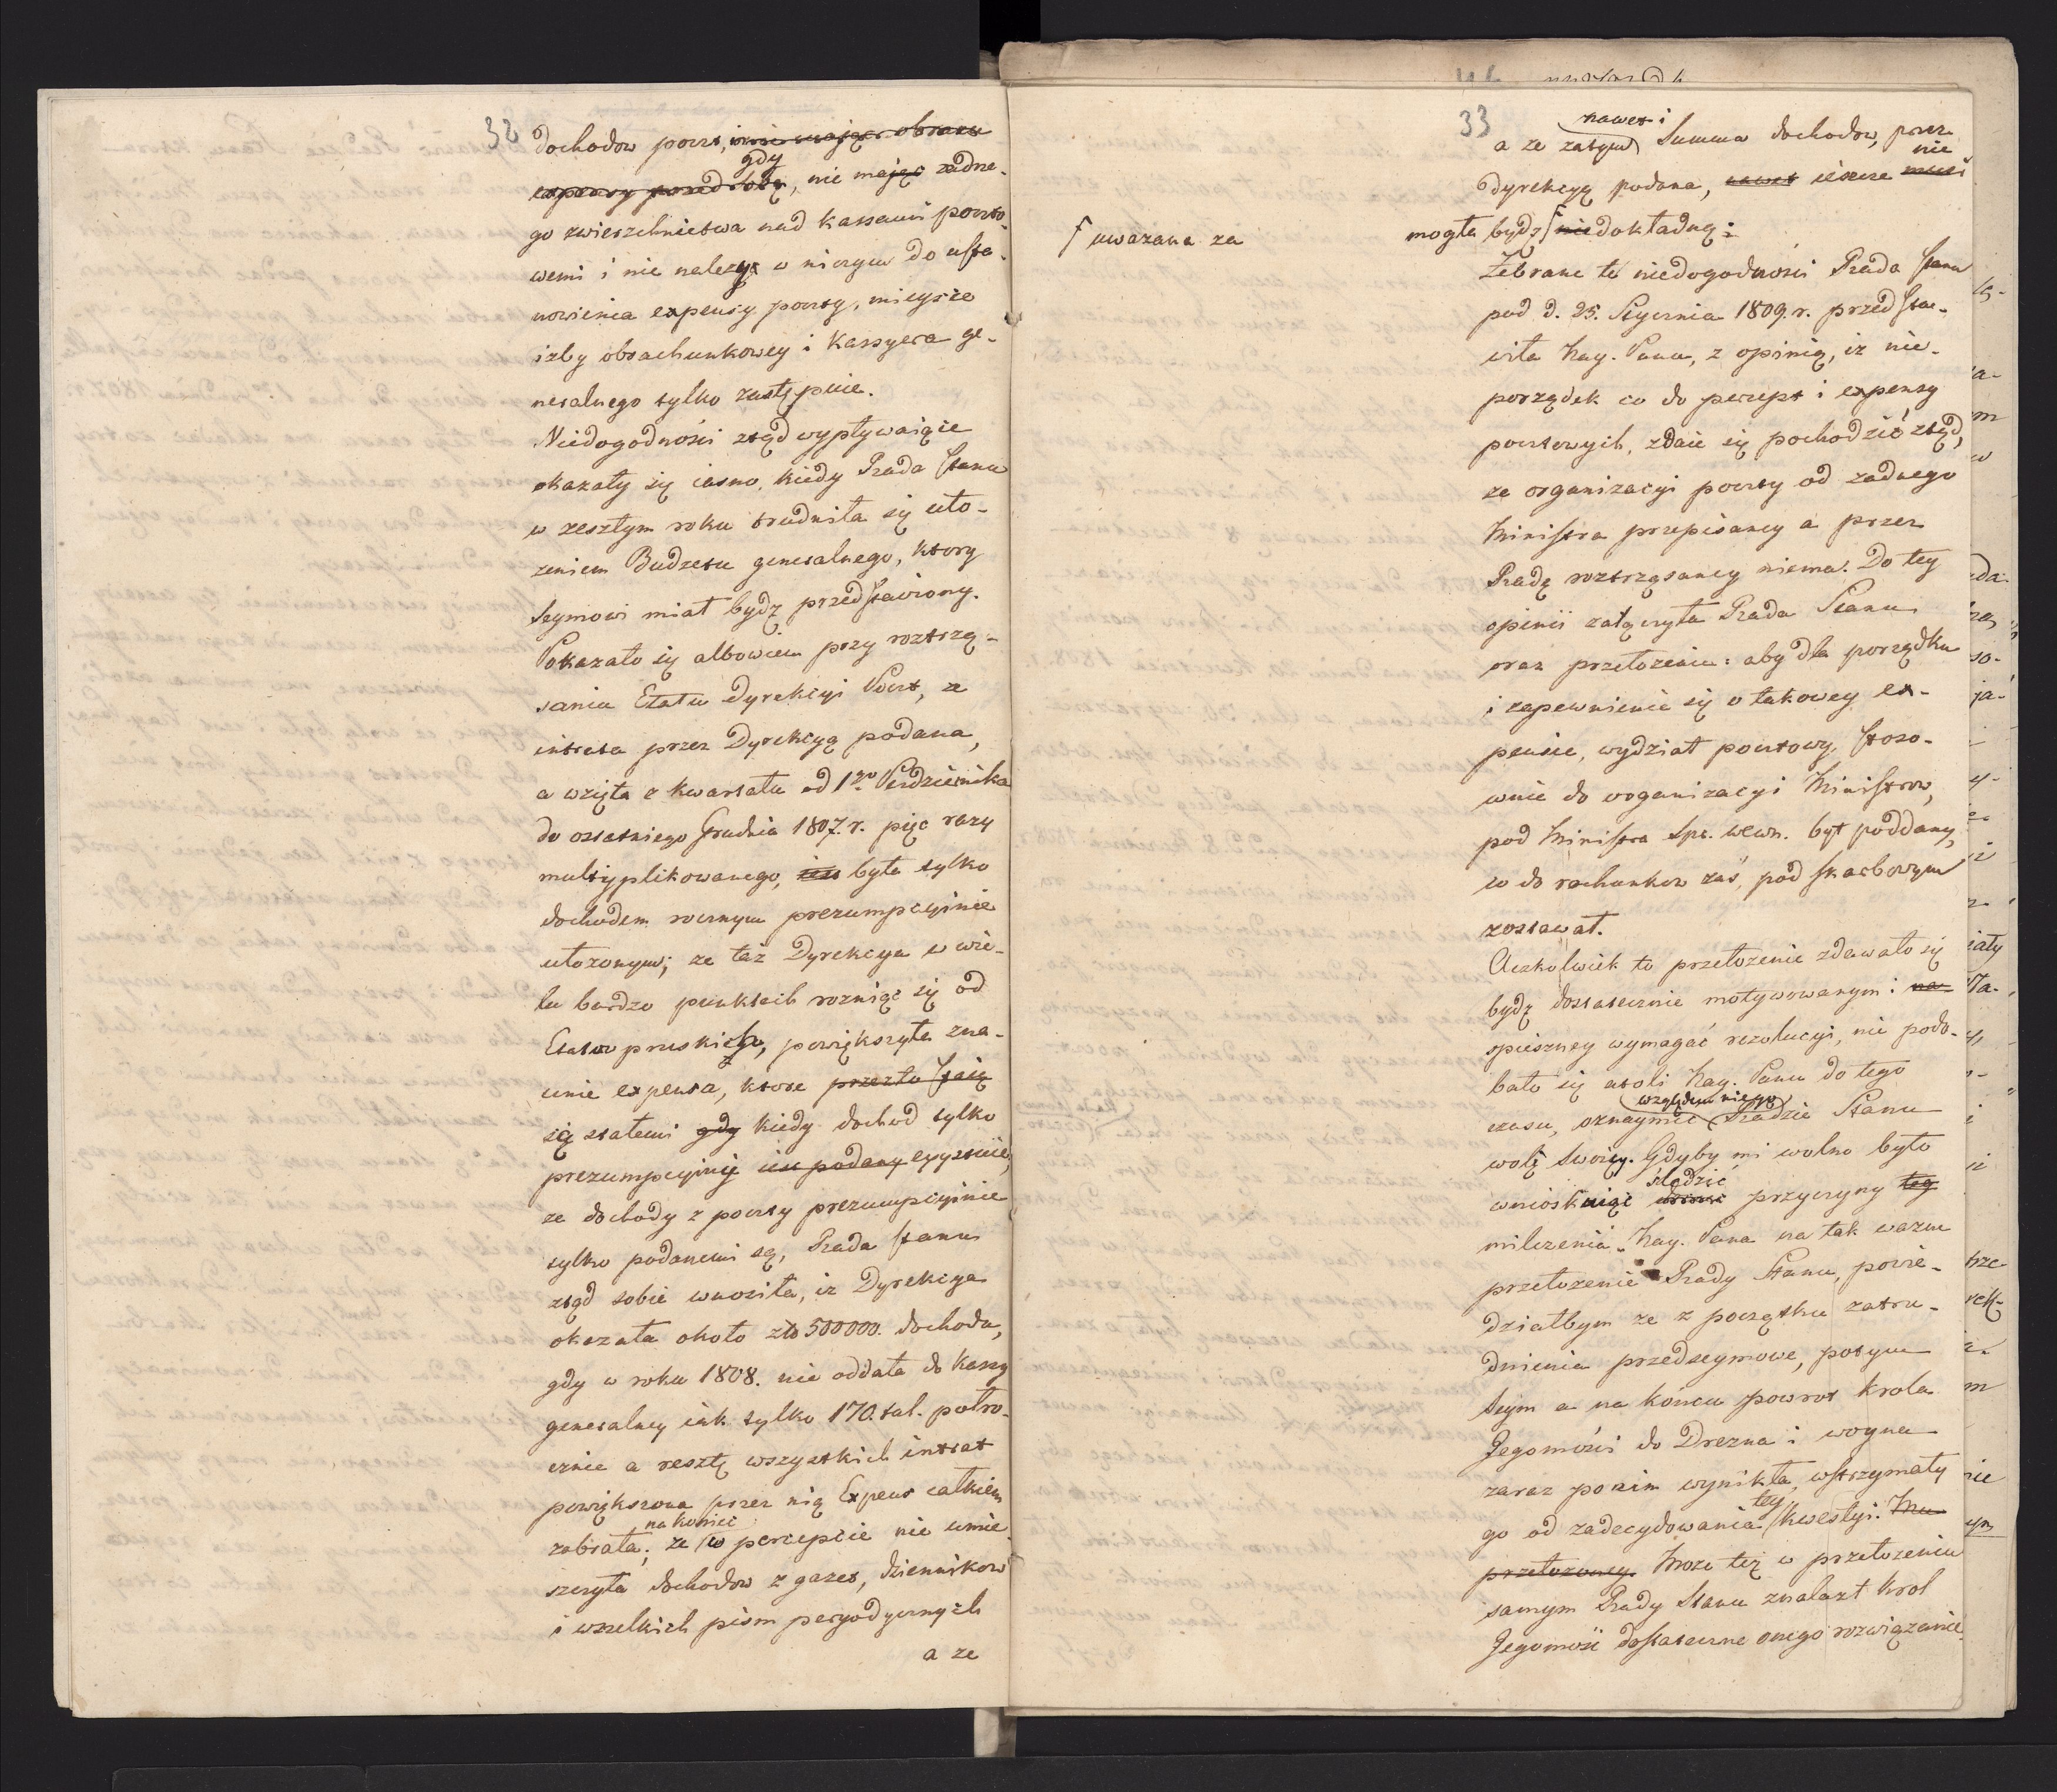 32
dochodow poczt, inne mając obrane
gdy
expensy przed sobą, nie mając zadne-
go zwierzchnictwa nad kassami poczto-
wemi i nie naleząc w niczym do usta-
nowienia expensy poczty, mieysce
izby obrachunkowey i Kassyera ge-
neralnego tylko zastępuie.
Niedogodności ztąd wypływaiące
okazały się iasno, kiedy Rada Stanu
w zeszłym roku trudniła się uło-
zeniem Budzetu generalnego, ktory
Seymowi miał bydz przedstawiony.
Pokazało się albowiem przy roztrzą-
saniu Etatu Dyrekcyi Poczt, ze
intrata przez Dyrekcyą podana,
a wzięta z kwartału od 1go Pazdziernika
do ostatniego Grudnia 1807. r. pięc razy
multyplikowanego, iest była tylko
dochodem rocznym prezumpcyinie
ułozonym; ze taz Dyrekcya w wie-
lu bardzo punktach rozniąc się od
Etatow pruskich, powiększyła zna-
cznie expensa, ktore przezto staią
się stałemi gdy kiedy dochod tylko
prezumpcyiny iest podany exystuie,
ze dochody z poczty prezumpcyinie
tylko podanemi są, Rada Stanu
ztąd sobie wnosiła, iz Dyrekcya
okazała około zło 500000. dochodu,
gdy w roku 1808. nie oddała do Kassy
generalney iak tylko 170. tal. potro-
cznie a resztę wszystkich intrat
powiększona przez nią Expens całkiem
nakoniec
zabrała; ze w percepcie nie umie-
szczyła dochodow z gazet, dziennikow
i wszelkich pism peryodycznych
a ze
33
nawet i
a ze zatym Summa dochodow, przez
nie
Dyrekcyą podana, nawet ieszcze musi
mogła bydz niedokładną.
uwazana za
Zebrane te niedogodności Rada Stanu
pod d. 25. Stycznia 1809. r. przedsta-
wiła Nay. Panu, z opinią, iz nie-
porządek co do percept i expensy
pocztowych, zdaie się pochodzić ztąd,
ze organizacyi poczty od zadnego
Ministra przepisaney a przez
Radę roztrząsaney niema. Do tey
opinii załączyła Rada Stanu
oraz przełozenie: aby dla porządku
i zapewnienia się o takowey ex-
pensie, wydział pocztowy stoso-
wnie do organizacyi Ministrow,
pod Ministra Spr. wewn. był poddany,
co do rachunkow zaś, pod skarbowym
zostawał.
Aczkolwiek to przełozenie zdawało się
bydz dostatecznie motywowanym i na-
spieszney wymagać rezolucyi, nie podo-
bało się atoli Nay. Panu do tego
względem niego
czasu, oznaymić Radzie Stanu
wolę Swoią. Gdyby mi wolno było
śledzić
wnioskuiąc przyczyny tey
milczenia Nay. Pana na tak wazne
przełozenie Rady Stanu, powie-
działbym ze z początku zatru-
dnienia przedseymowe, potym
Seym a na końcu powrot Krola
Jegomości do Drezna i woyna
zaraz po nim wynikła, wstrzymały
tey
go od zadecydowania kwestyi. Mu
przełozoney. Moze tez w przełozeniu
samym Rady Stanu znalazł Krol
Jegomość dostateczne onego rozwiązanie